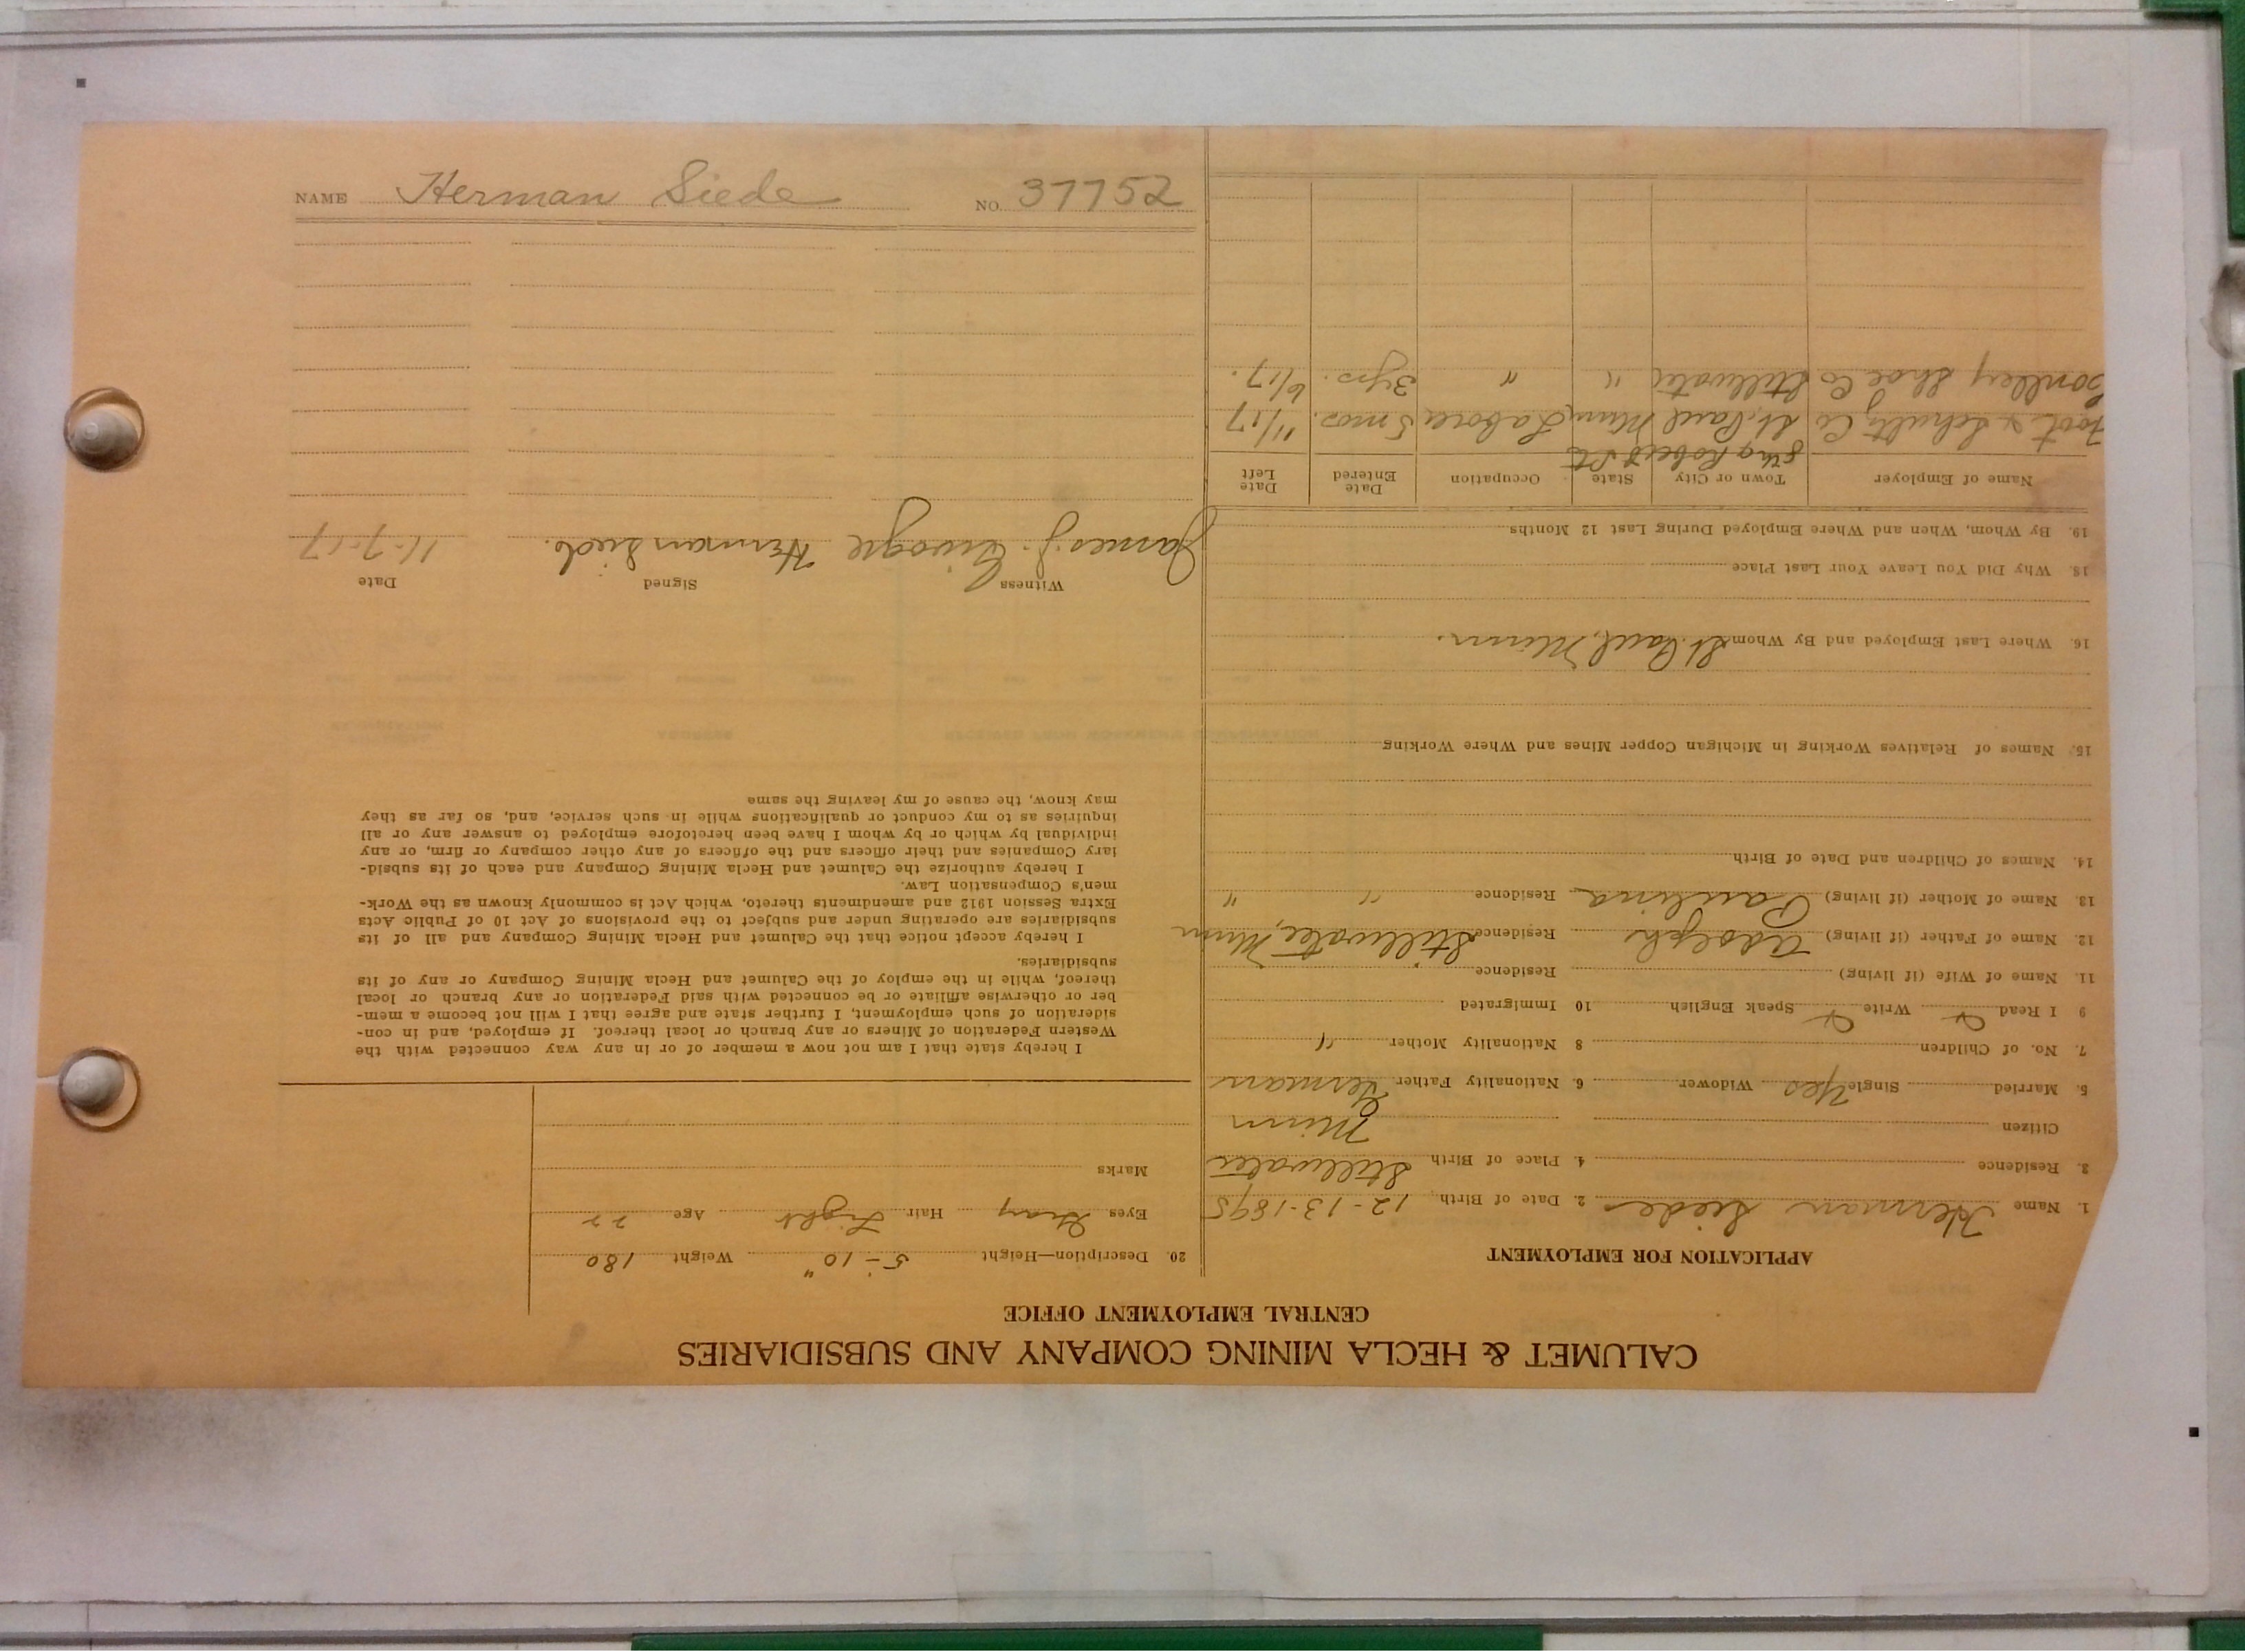 CALUMET & HECLA MINING COMPANY AND SUBSIDIARIES
CENTRAL EMPLOYMENT OFFICE
APPLICATION FOR EMPLOYMENT
1. Name Herman Siede 2. Date of Birth 12-13-1895
3. Residence 4. Place of Birth Stillwater
Citizen Minn
5. Married Single Yes Widower 6. Nationality Father German
7. No. of Children 8 Nationality Mother "
9 I Read Write Speak English 10 Immigrated
11. Name of Wife (if living) Residence
12. Name of Father (if living) Adolph Residence Stillwater, Minn
13. Name of Mother (if living) Paulina Residence " "
14. Names of Children and Date of Birth
15. Names of Relatives Working in Michigan Copper Mines and Where Working
16. Where Last Employed and By Whom St. Paul, Minn.
18. Why Did You Leave Your Last Place
19. By Whom, When and Where Employed During Last 12 Months
Name of Employer Town or City State Occupation Date Entered Date Left
8th & Robert St
Foot & Schultz Co St. Paul Minn Labore 5 mos. 11/17
Shoe Co Stillwater " " 3 yrs. 6/17.
20. Description—Height 5-10" Weight 180
Eyes Gray Hair Light Age 22
Marks
I hereby state that I am not now a member of or in any way connected with the
Western Federation of Miners or any branch or local thereof. If employed, and in con-
sideration of such employment, I further state and agree that I will not become a mem-
ber or otherwise affiliate or be connected with said Federation or any branch or local
thereof, while in the employ of the Calumet and Hecla Mining Company or any of its
subsidiaries.
I hereby accept notice that the Calumet and Hecla Mining Company and all of its
subsidiaries are operating under and subject to the provisions of Act 10 of Public Acts
Extra Session 1912 and amendments thereto, which Act is commonly known as the Work-
men's Compensation Law.
I hereby authorize the Calumet and Hecla Mining Company and each of its subsid-
iary Companies and their officers and the officers of any other company or firm, or any
individual by which or by whom I have been heretofore employed to answer any or all
inquiries as to my conduct or qualifications while in such service, and, so far as they
may know, the cause of my leaving the same
Witness Signed Date
James J. Herman Siede. 11-7-17
NAME Herman Siede NO. 37752